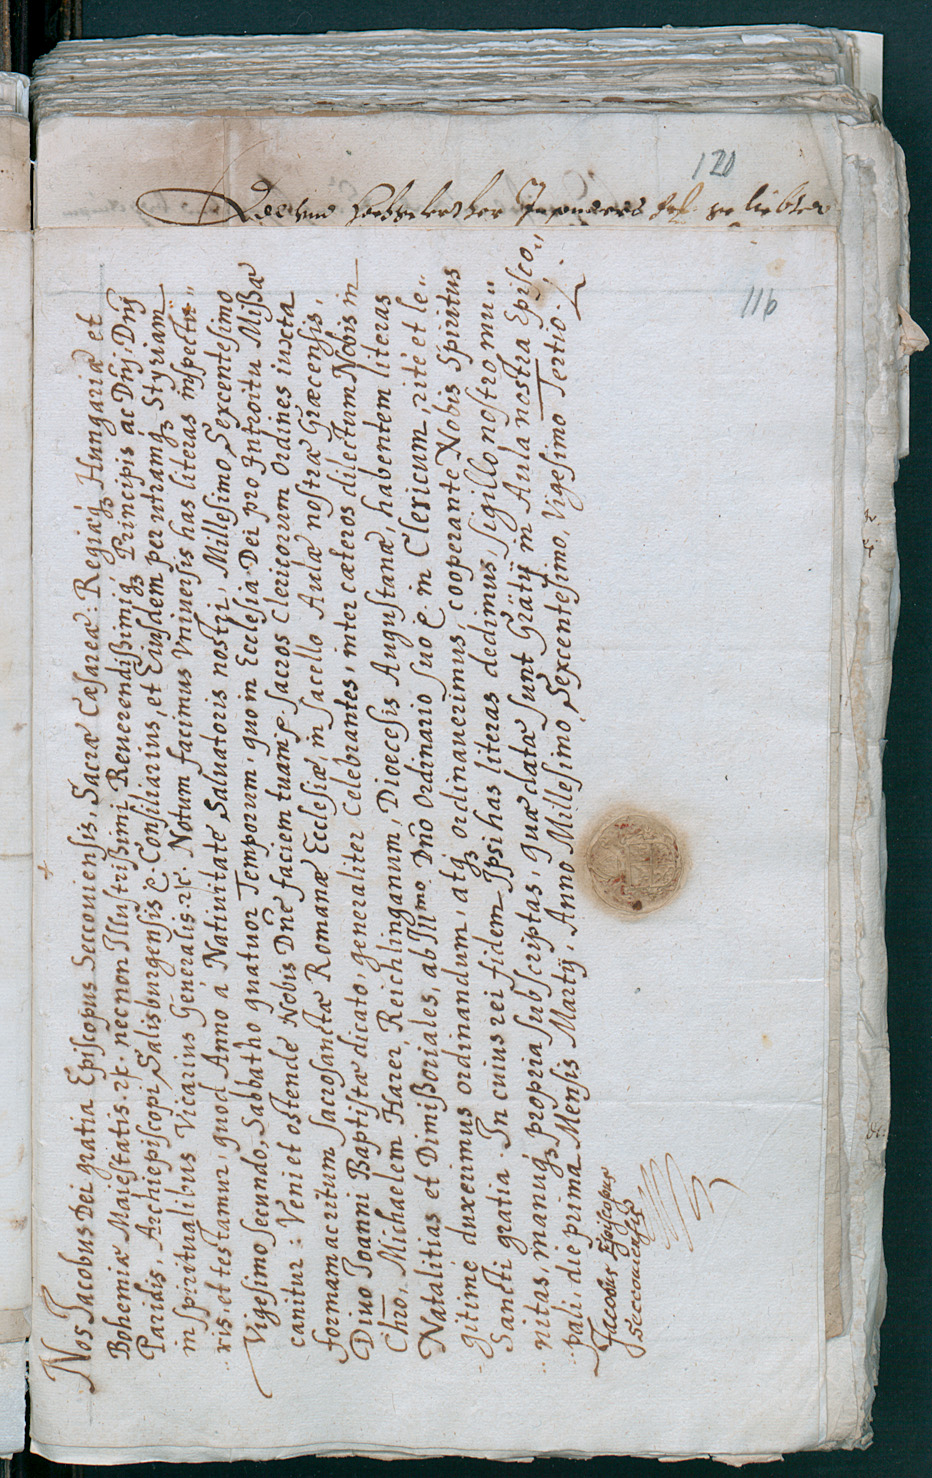 120
116
Nos Jacobus Dei gratia Episcopus Seccouiensis, Sacræ Cæsareæ: Regiæq₃ Hungariæ et
Bohemiæ Maiestatis. ꝛc. necnon Illustrißimi Reuerendißimiq₃ Principis ac Dn̄j Dn̄j
Paridis, Archiepiscopi Salisburgensis ꝛc. Consiliarius, et Eiusdem per utramq₃ Styriam
in spiritualibus Vicarius Generalis. ꝛc. Notum facimus Vniuersis has literas inspectu⸗
ris, et testamur, quod Anno a Natiuitate Saluatoris nostri, Millesimo, Sexcentesimo
Vigesimo secundo, Sabbatho quatuor Temporum, quo in Ecclesia Dei pro Introitu Mißæ
canitur: Veni et ostende Nobis Dn̄e faciem tuam ꝛc. sacros Clericorum Ordines iuxta
formam ac ritum Sacrosanctæ Romanæ Ecclesiæ, in sacello Aulæ nostræ Græcensis,
Diuo Joanni Baptistæ dicato, generaliter Celebrantes, inter cæteros dilectum Nobis in
Chr̄o, Michaelem Harer, Reichlinganum, Dioecesis Augustanæ, habentem literas
Natalitias et Dimißoriales, ab Ill̄mo Dn̄o Ordinario suo ꝛc. in Clericum, ritè et le⸗
gitime duximus ordinandum, atq₃ ordinauerimus, cooperante Nobis Spiritus
Sancti gratia. In cuius rei fidem Ipsi has literas dedimus, sigillo nostro mu⸗
nitas, manuq₃ propria subscriptas, quæ datæ sunt Grätij in Aula nostra Episco⸗
pali, die prima Mensis Martij, Anno Millesimo, Sexcentesimo, Vigesimo Tertio.
Jacobus Episcopus
Seccouiensis